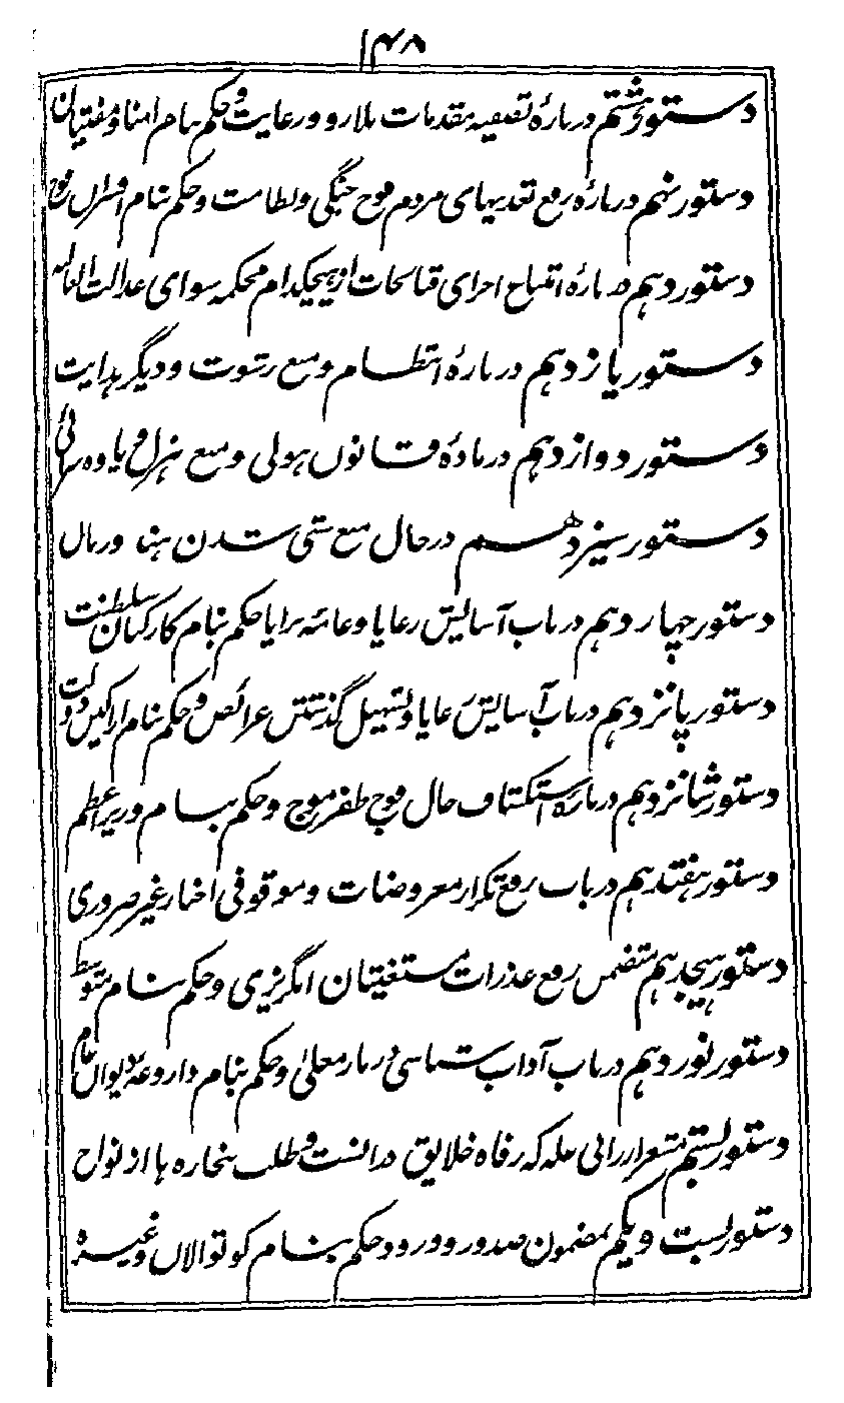 ۱۴۸
دستور هشتم دربارهٔ تصفیه مقدمات بلا رو و رعایت و حکم بنام امنا و مفتیان
دستور نہم دربارهٔ رفع تعدیہای مردم فوج جنگی و نظامت و حکم بنام افسران فوج
دستور دہم دربارهٔ امتناع اجرای قباحات از ہیچکدام محکمہ سوای عدالت العالیہ
دستور یازدہم دربارهٔ انتظام و منع رشوت و دیگر ہدایت
دستور دوازدہم در مادهٔ قانون ہولی و منع ہزل و یاوہ سرائی
دستور سیزدهم در حال منع ستی شدن ہنا ور مال
دستور چہاردہم در باب آسایش رعایا و عامہ برایا حکم بنام کارکنان سلطنت
دستور پانزدہم در باب آسایش رعایا و تسہیل گذشتن عرائض و حکم بنام اراکین دولت
دستور شانزدہم دربارهٔ استکشاف حال فوج ظفر موج و حکم بنام وزیر اعظم
دستور ہفتدہم در باب رفع تکرار معروضات و موقوفی اخبار غیر ضروری
دستور ہیجدہم متضمن رفع عذرات مستغیثان انگریزی و حکم بنام متوسط
دستور نوزدہم در باب آداب شناسی دربار معلیٰ و حکم بنام داروغہ دیوان عام
دستور بستم مشعر ارزانی غلہ کہ رفاہ خلایق در انست و طلب بنجارہ ہا از نواح
دستور بست و یکم بمضمون صدور و ورود حکم بنام کوتوالان وغیرہ